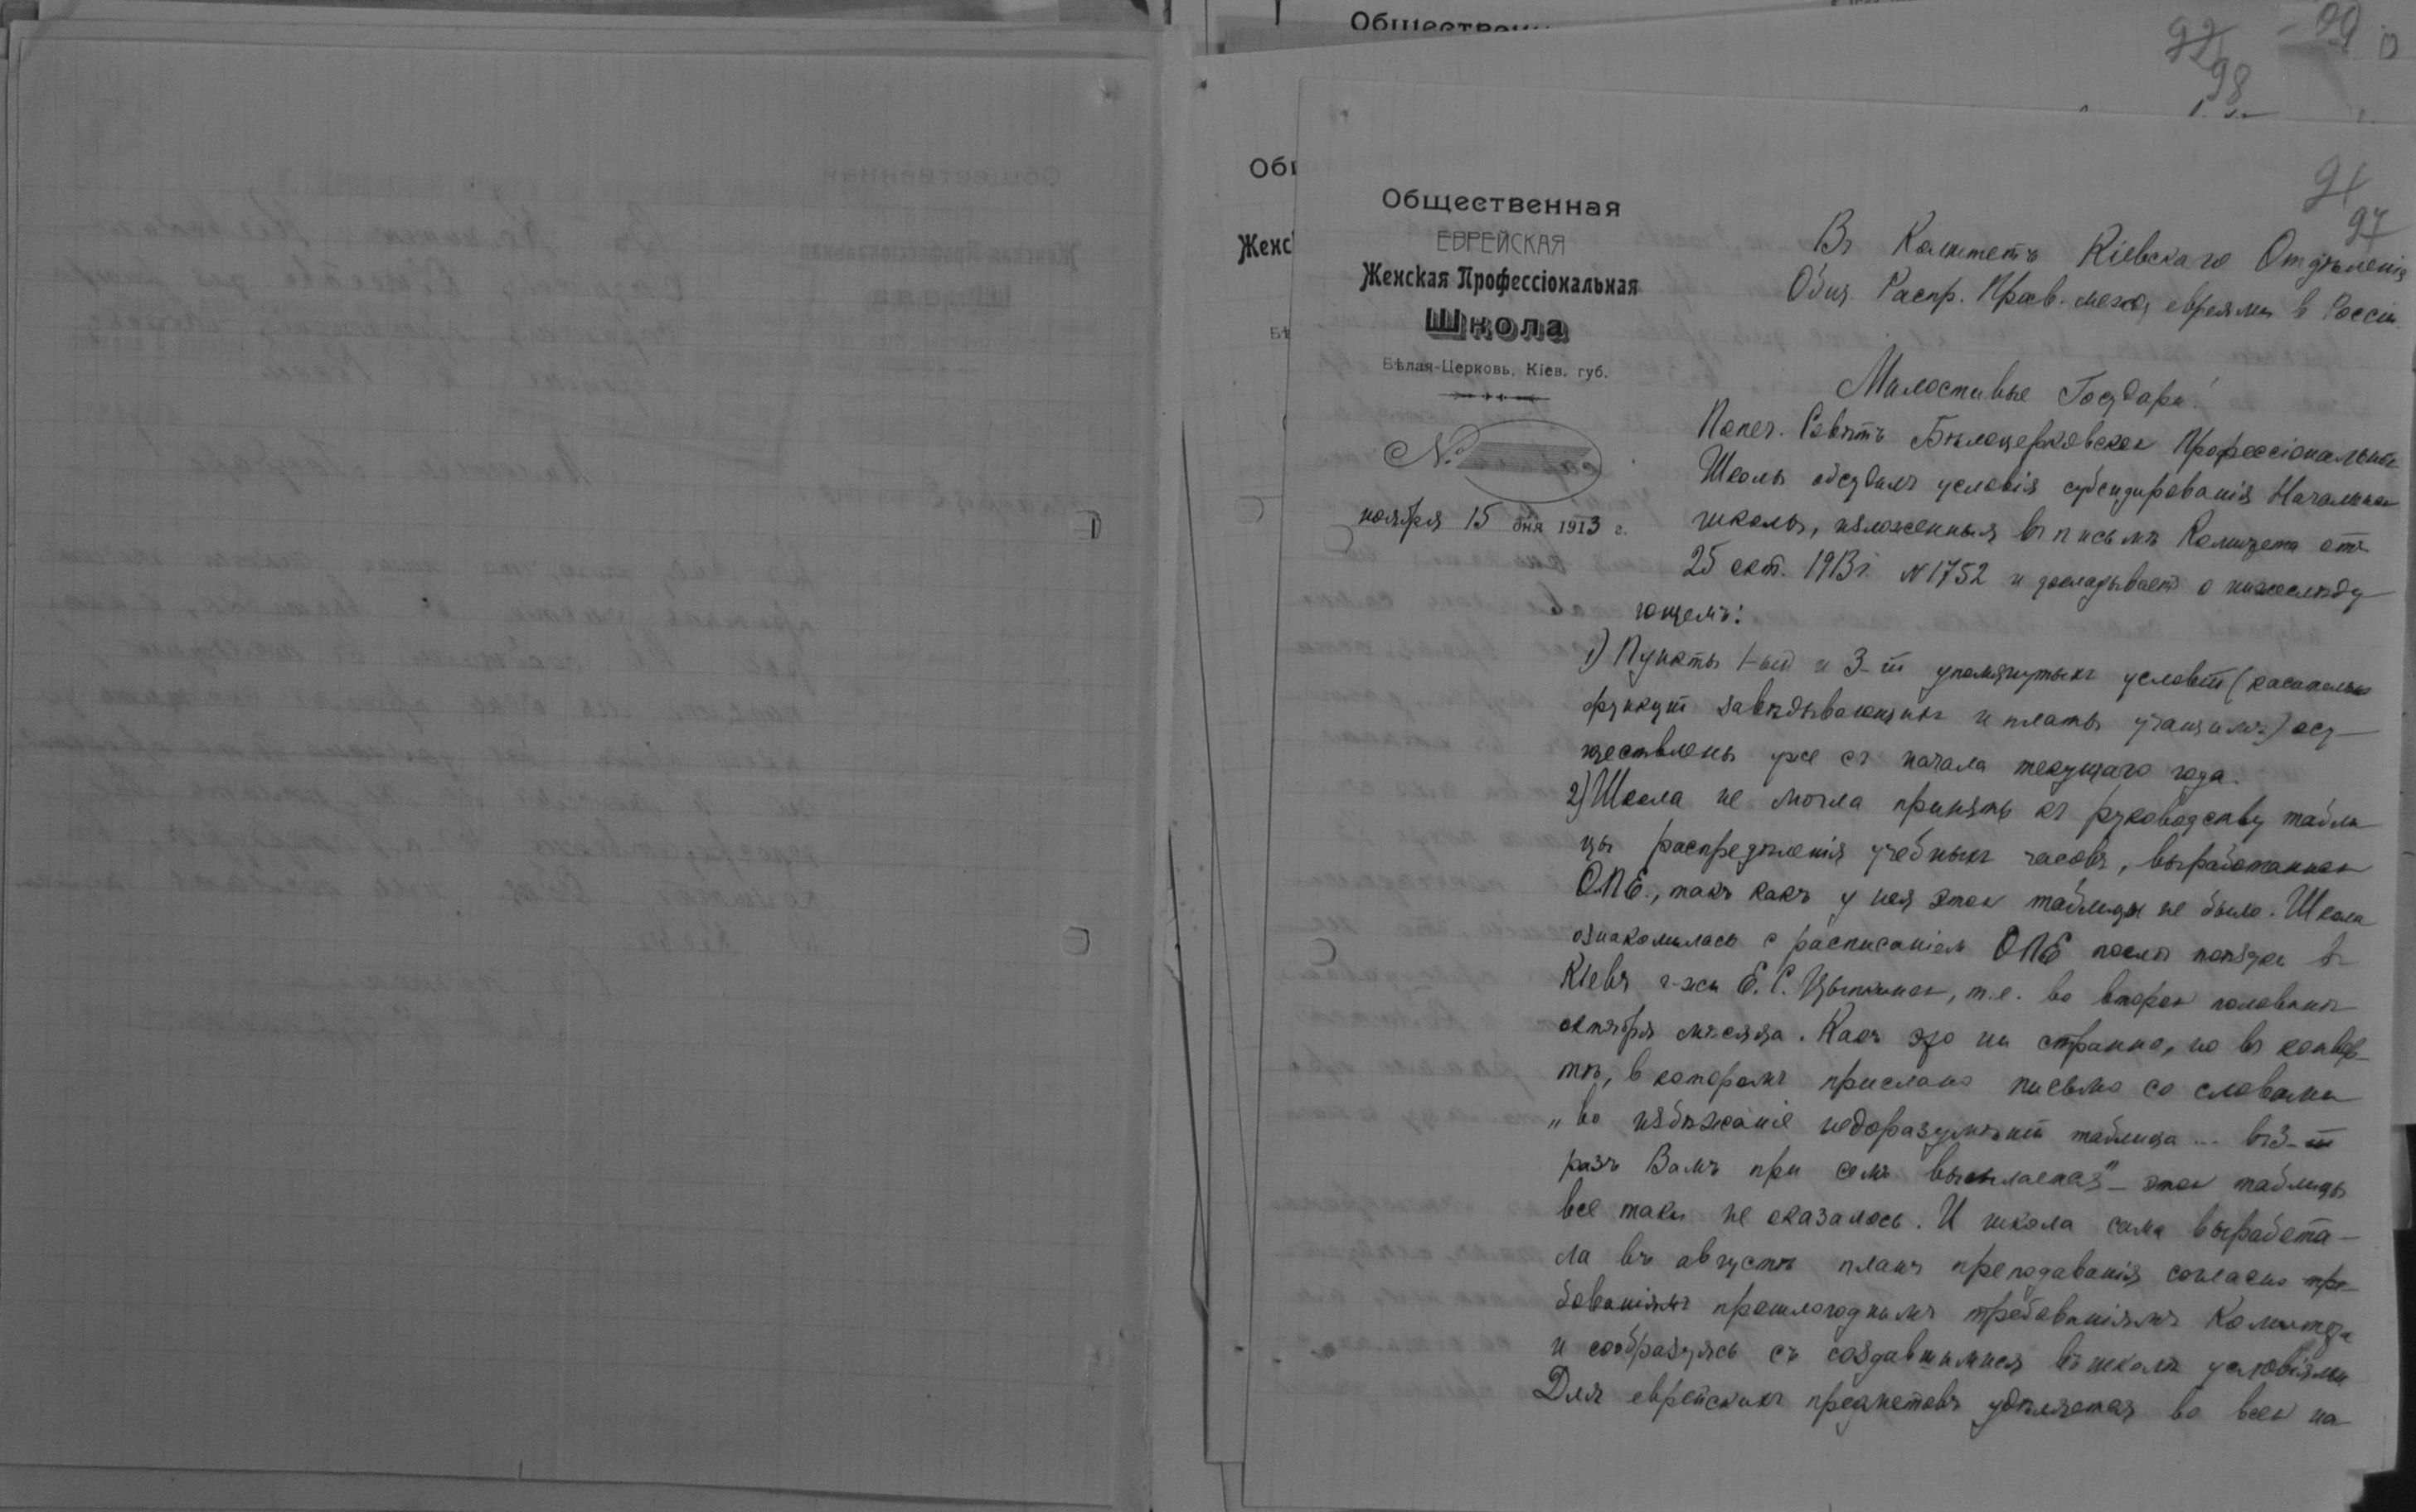 Общественная
ЕВРЕЙСКАЯ
Женская Профессіональная
Школа
Бѣлая-Церковь, Кіев. губ.
№
ноября 15 дня 1913 г.
91
97
Въ Комитетъ Кіевскаго Отдѣленія
Общ. Распр. Просв. межд. евреями в Россіи.
Милостивые Государи!
Попеч. Совѣтъ Бѣлоцерковской Профессіональной
Школы обсудилъ условія субсидированія Начальной
школы, изложенныя въ письмѣ Комитета отъ
25 окт. 1913 г. № 1752 и докладываетъ о нижеслѣду-
ющемъ:
1) Пункты 1-ый и 3-ій упомянутыхъ условій (касательно
функцій завѣдывающихъ и платы учащимъ) осу-
ществлены уже съ начала текущаго года.
2) Школа не могла принять къ руководству табли-
цы распредѣленія учебныхъ часовъ, выработанной
ОПЕ., такъ какъ у нея этой таблицы не было. Школа
ознакомилась с расписаніем ОПЕ послѣ поѣздки въ
Кіевъ г-жи Е. С. т.е. во второй половинѣ
октября мѣсяца. Какъ это ни странно, но въ конвер-
тѣ, в которомъ прислано письмо со словами
„во избѣжаніе недоразумѣній таблица ... въ 3-ій
разъ Вамъ при семъ высылается" - этой таблицы
все таки не оказалось. И школа сама выработа-
ла въ августѣ планъ преподаванія согласно тре-
бованіямъ прошлогоднимъ требованіямъ Комитета
и сообразуясь съ создавшимися въ школѣ условіями
Для еврейскихъ предметовъ удѣляется во всей на-
92
98
99
Общественн
Общ
Женс
Бѣ